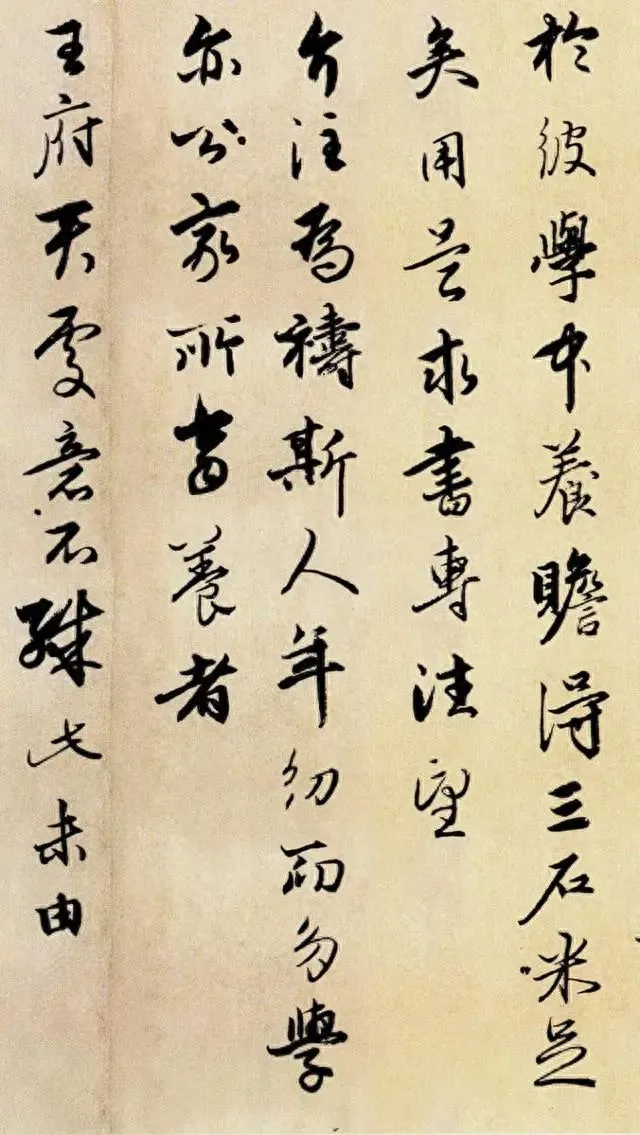 於彼學中養贍得三石米足
矣用是求書專往望
介注為禱斯人年幼而勿學
亦公家所當養者
王府天處意不殊此未由